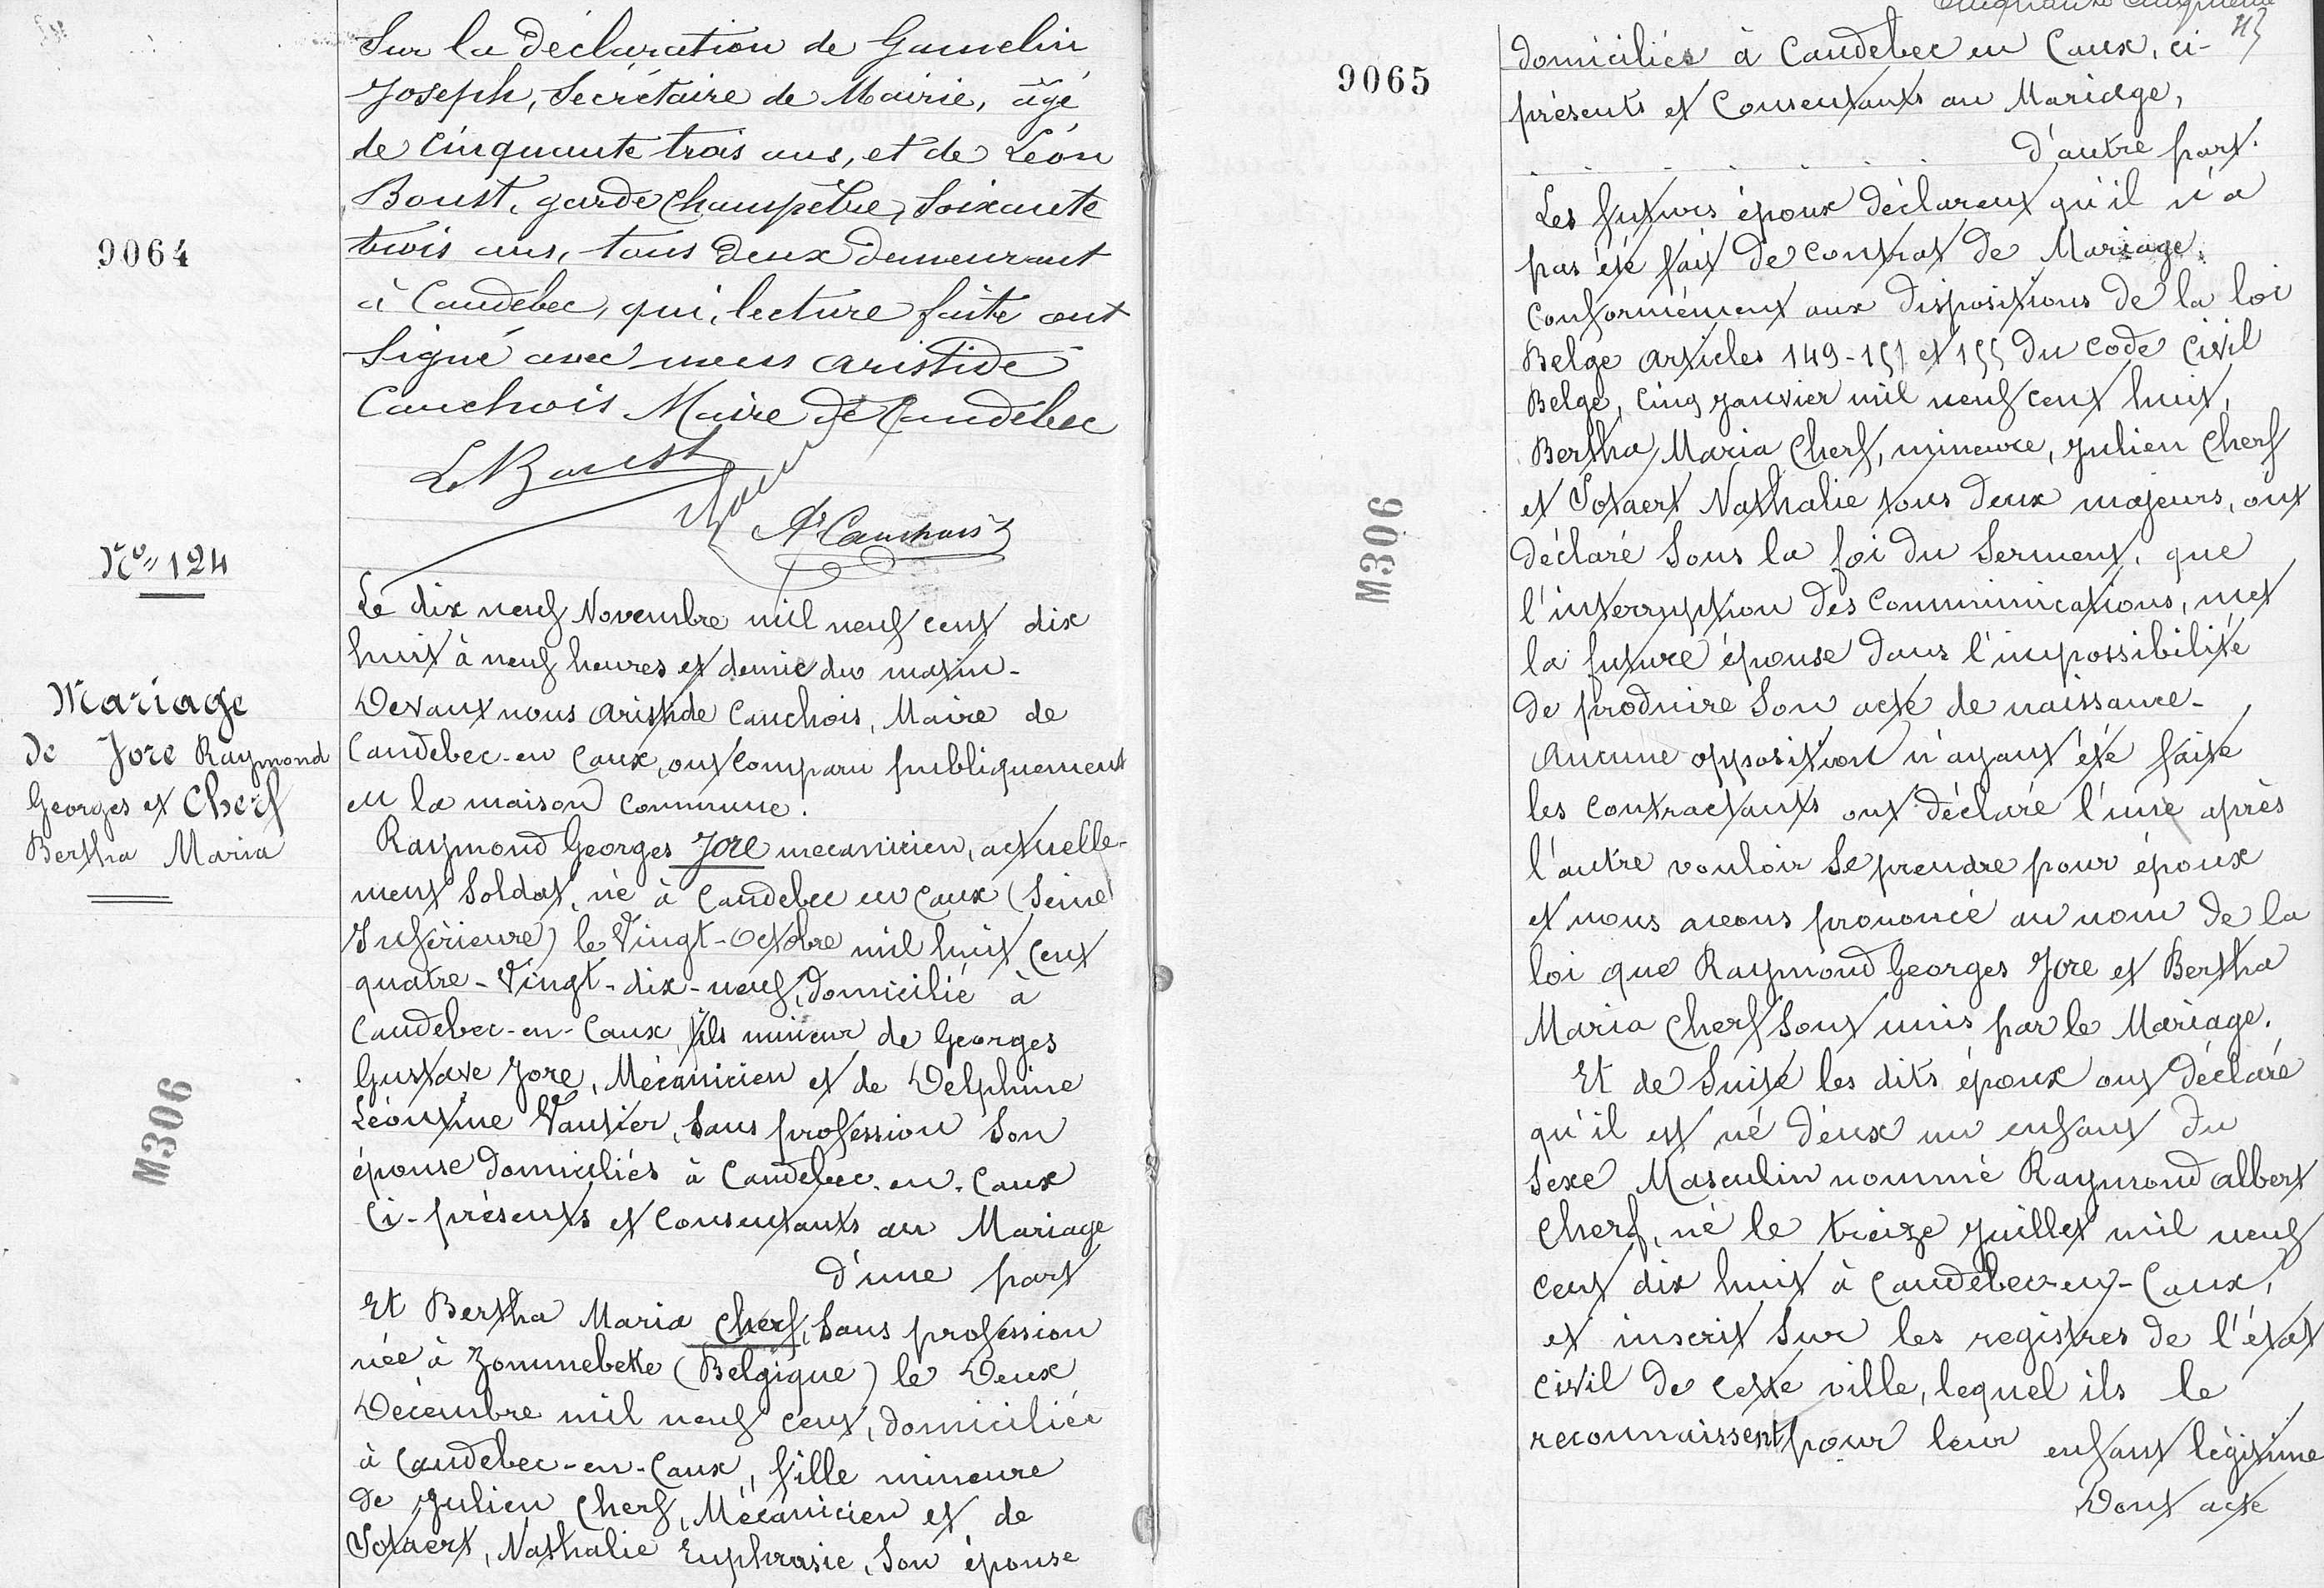 Sur la déclaration de Gamelin
Joseph, Secrétaire de Mairie, âgé
de cinquante trois ans, et de Léon
Boust, garde Champêtre, Soixante
trois ans, tous deux demeurant
à Caudebec, qui, lecture faite ont
Signé avec nous Aristide
Cauchois Maire de Caudebec
9064
L Boust
A. Cauchois
N° 124
Mariage
de Jore Raymond
Georges et Cherf
Bertha Maria
M306
Le dix neuf Novembre mil neuf cent dix
huit à neuf heures et demie du matin.
Devant nous Aristide Cauchois, Maire de
Caudebec-en Caux, ont comparu publiquement
en la maison commune.
Raymond Georges Jore mecanicien, actuelle-
ment Soldat, né à Caudebec en Caux (Seine
Inférieure) le Vingt-Octobre mil huit cent
quatre-Vingt-dix-neuf, domicilié à
Caudebec-en-Caux, fils mineur de Georges
Gustave Jore, Mécanicien et de Delphine
Léontine Vautier, Sans profession Son
épouse domiciliés à Caudebec-en-Caux
Ci-présents et Consentants au Mariage
d'une part
Et Bertha Maria Cherf, Sans profession
née à Zonnnebeke (Belgique) le Deux
Décembre mil neuf cent, domiciliée
à Caudebec-en-Caux, fille mineure
de Julien Cherf, Mécanicien et de
Sotaert, Nathalie Euphrasie, Son épouse
9065
M306
domiciliés à Caudebec en Caux, ci-
présents et Consentants au Mariage,
d'autre part.
Les futurs époux déclarent qu'il n'a
pas été fait de contrat de Mariage.
Conformément aux dispositions de la loi
Belge articles 149-151 et 155 du code Civil
Belge, Cinq Janvier mil neuf cent huit,
Bertha Maria Cherf, mineure, Julien Cherf
et Sotaert Nathalie tous deux majeurs, ont
déclaré Sous la foi du Serment, que
l'interruption des Communications, met
la future épouse dans l'impossibilité
de produire Son acte de naissance-
Aucune opposition n'ayant été faite
les contractants ont déclaré l'une après
l'autre vouloir Se prendre pour époux
et nous avons prononcé au nom de la
loi que Raymond Georges Jore et Bertha
Maria Cherf Sont unis par le Mariage.
Et de Suite les dits époux ont déclaré
qu'il est né d'eux un enfant du
Sexe Masculin nommé Raymond Albert
Cherf, né le treize Juillet mil neuf
cent dix huit à Caudebec-en-Caux,
et inscrit Sur les registres de l'état
civil de cette ville, lequel ils le
reconnaissent pour leur enfant légitime
Dont acte